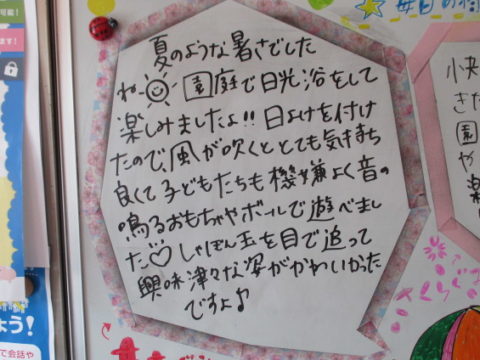 夏のような暑さでした
ね 園庭で日光浴をして
楽しみましたよ!!日よけを付け
たので、風が吹くととても気持ち
良くて子どもたちも機嫌よく音の
鳴るおもちゃやボールで遊べまし
た♡しゃぼん玉を目で追って
興味津々な姿がかわいかった
ですよ♪
毎日の
小快
きた
園
や
楽
よう!
で会話や